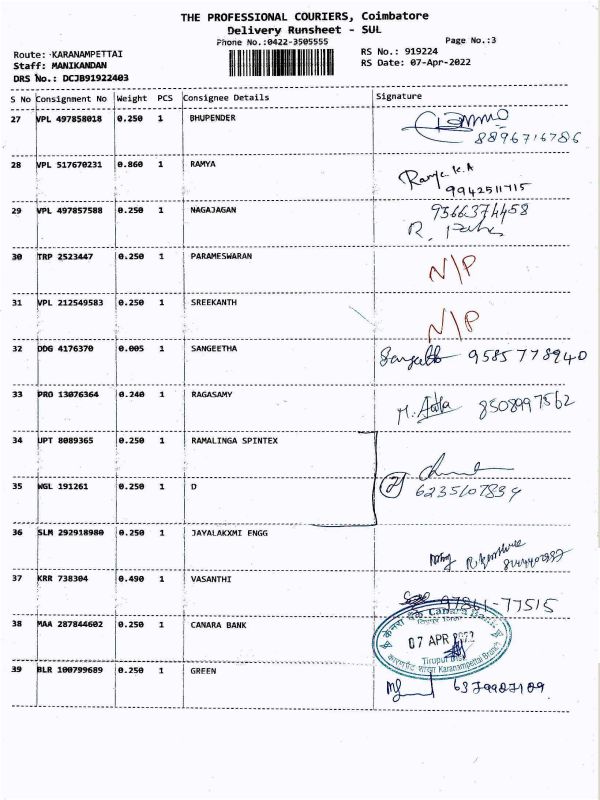 THE PROFESSIONAL COURIERS, Coimbatore
Delivery Runsheet - SUL
Phone No.:0422-3505555
Page No.:3
Route: KARANAMPETTAI
RS No.: 919224
Staff: MANIKANDAN
RS Date: 07-Apr-2022
DRS No.: DCJB91922403
S No Consignment No Weight PCS Consignee Details Signature
27 VPL 497858018 0.250 1 BHUPENDER
8896716786
28 VPL 517670231 0.860 1 RAMYA Ramya K.A
9942511715
29 VPL 497857588 0.250 1 NAGAJAGAN 9566374458
R.
30 TRP 2523447 0.250 1 PARAMESWARAN N/P
31 VPL 212549583 0.250 1 SREEKANTH N/P
32 DDG 4176370 0.005 1 SANGEETHA Sangeetha 9585778940
33 PRO 13076364 0.240 1 RAGASAMY M. 8508997562
34 UPT 8089365 0.250 1 RAMALINGA SPINTEX
35 WGL 191261 0.250 1 D 2 6235107834
36 SLM 292918980 0.250 1 JAYALAXMI ENGG
37 KRR 738304 0.490 1 VASANTHI 97861-77515
38 MAA 287844602 0.250 1 CANARA BANK
केनरा बैंक Canara Bank
07 APR 2022
Tirupur Dist
Karanampettai Branch
39 BLR 100799689 0.250 1 GREEN 6379987109